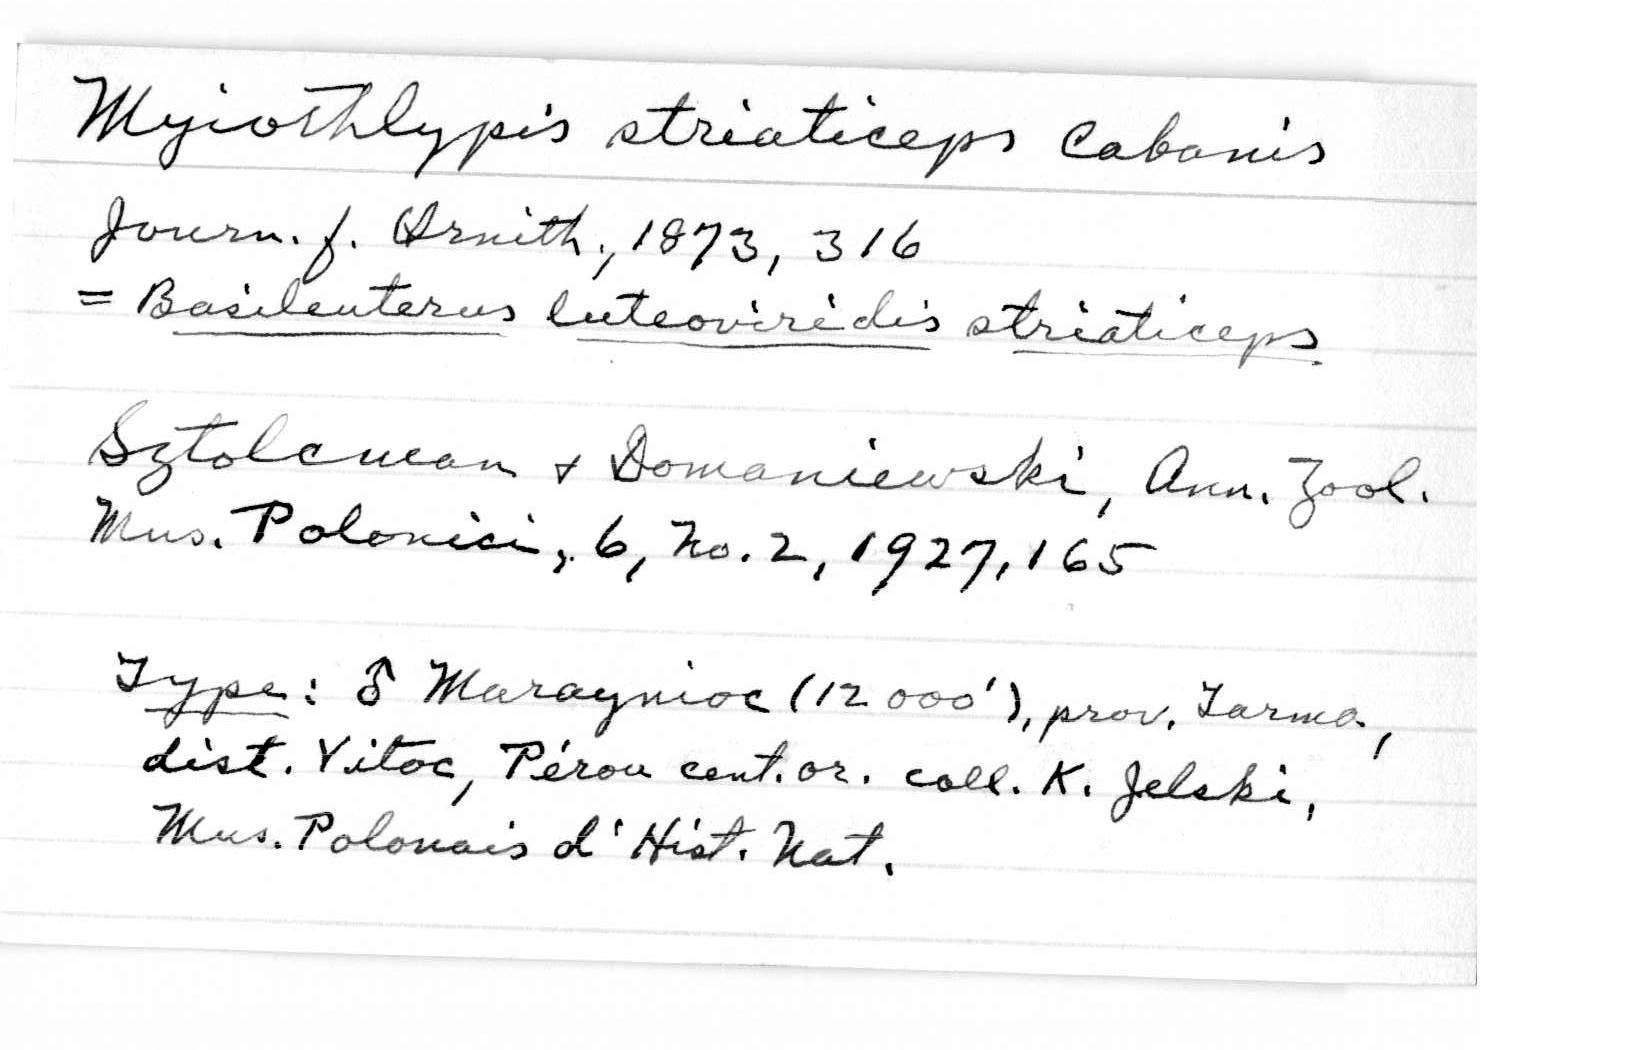 Myiothlypis striaticeps Cabanis
Journ. f. Ornith., 1873, 316
= Basileuterus luteoviridis striaticeps
Sztolcman + Domaniewski, Ann. Zool.
Mus. Polonici, 6, No. 2, 1927, 165
Type: ♂ Maraynioc (12000'), prov. Tarma,
dist. Vitoc, Pérou cent. or. coll. K. Jelski,
Mus. Polonais d'Hist. Nat.